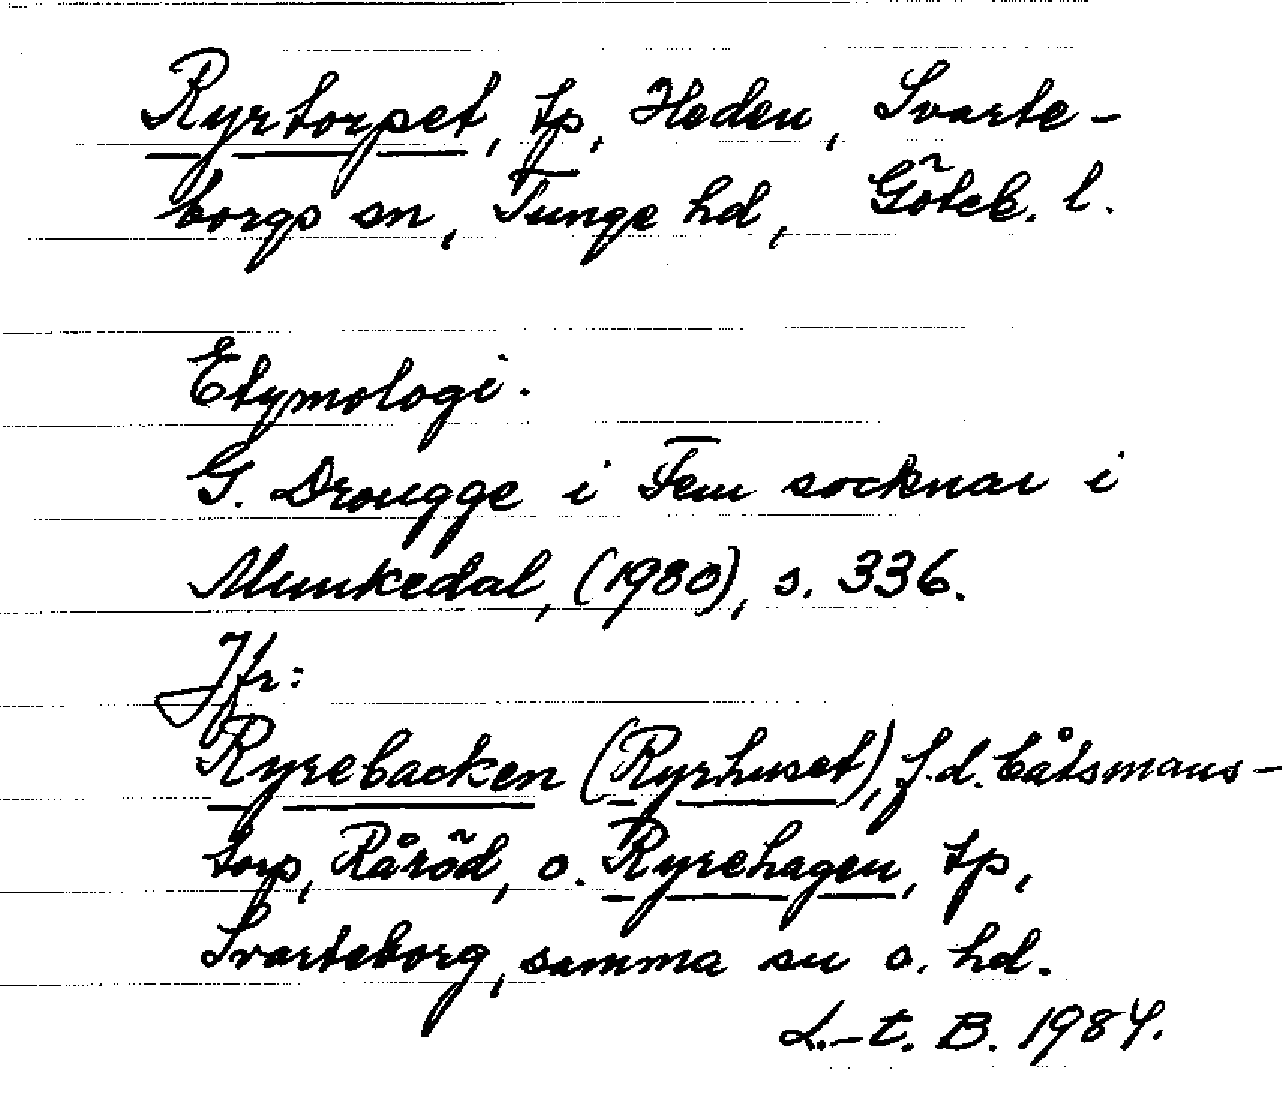 Ryrtorpet, tp, Heden, Svarte-
borgs sn, Tunge hd, Göteb. l.
Etymologi.
G. Drougge i Fem socknar i
Munkedal, (1980), s. 336.
Jfr:
Ryrebacken (Ryrhuset), f.d. båtsmans-
torp, Råröd, o. Ryrehagen, tp,
Svarteborg, samma sn o. hd.
L.-t. B. 1984.